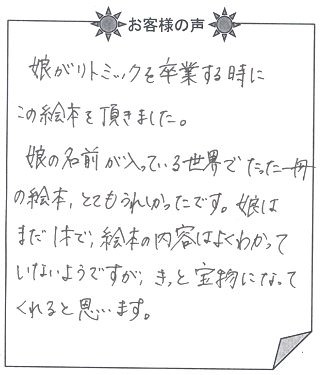 お客様の声
娘がリトミックを卒業する時に
この絵本を頂きました。
娘の名前が入っている世界でたった一冊
の絵本、とてもうれしかったです。娘は
まだ1才で、絵本の内容はよくわかって
いないようですが、きっと宝物になって
くれると思います。